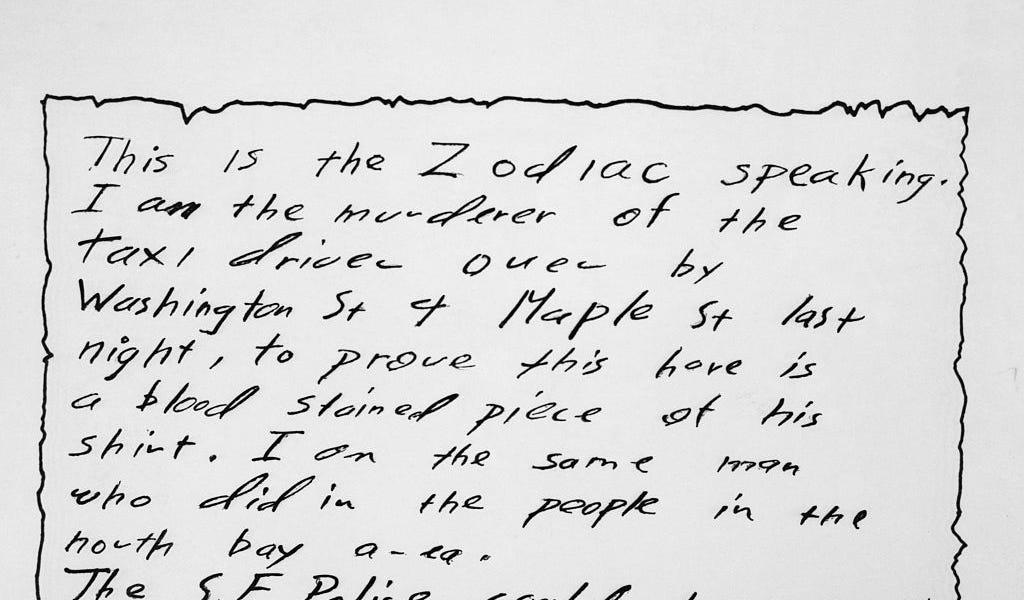 This is the Zodiac speaking.
I am the murderer of the
taxi driver over by
Washington St & Maple St last
night, to prove this here is
a blood stained piece of his
shirt. I am the same man
who did in the people in the
north bay area.
The S.F. Police